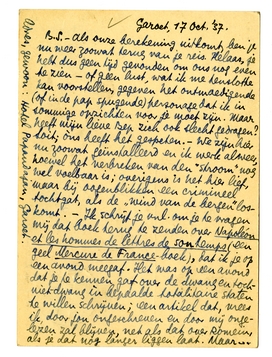 Garoet, 17 Oct. '37.
B.S. – Als onze berekening uitkomt, ben je
nu weer zoowat terug van je reis. Helaas, je
hebt dus geen tijd gevonden om ons nog even
te zien – of geen lust, wat ik me tenslotte
kan voorstellen gegeven het ontmoedigende
(of in de pap spugende) personage dat ik in
sommige opzichten voor je moet zijn. Maar
heeft mijn lieve Bep zich ook slecht gedragen?
Enfin, ons heeft het gespeten. – We zijn hier
nu zoowat geïnstalleerd en ik werk alweer,
hoewel het verbreken van den "stroom" nog
wel voelbaar is; overigens is het hier lief,
maar bij oogenblikken een crimineel
tochtgat, als de "wind van de bergen" los-
komt. – Ik schrijf je nu om je te vragen
mij dat boek terug te zenden over Napoléon
et les hommes de lettres de son temps (een
geel Mercure de France-boek), dat ik je op
een avond meegaf. Het was op een avond
dat je te kennen gaf over de dwang en toch-
niet-dwang in totalitaire staten
te willen schrijven; een artikel dat, meen
ik, door jou ongeschreven en door mij onge-
lezen zal blijven, net als dat over Romein
als je dat nog langer liggen laat. Maar...
Adres, gewoon: Hotel Papandajan, Garoet.